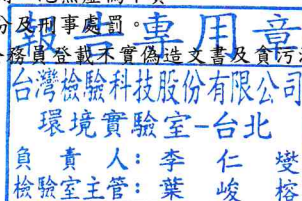 分及刑事處罰。
報告專用章
務員登載不實偽造文書及貪污
台灣檢驗科技股份有限公司
環境實驗室-台北
負責人：李仁燮
檢驗室主管：葉峻榕